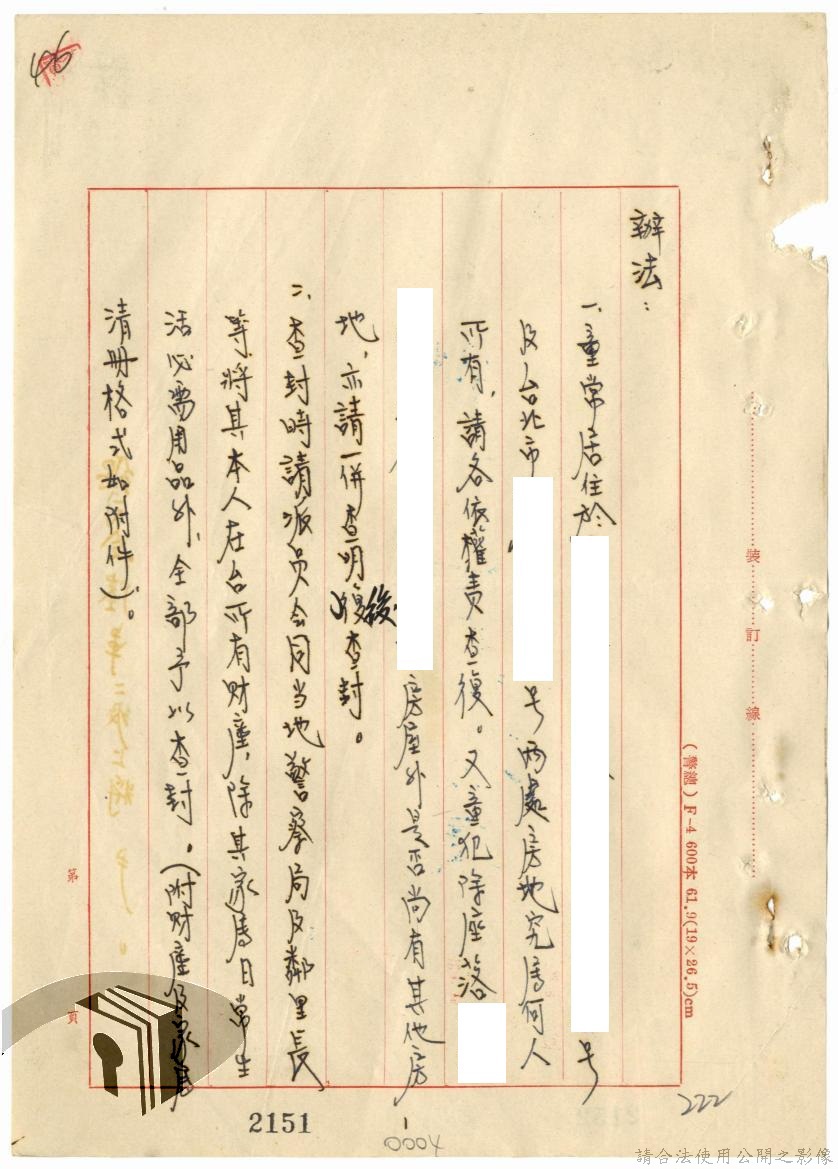 辦法：
一、童常居住於
号
及台北市
号兩處房地究為何人
所有，請各依權責查復。又童犯除座落
房屋外是否尚有其他房
地，亦請一併查明後查封。
二、查封時請派員会同当地警察局及鄰里長
等將其本人在台所有財產，除其家屬日常生
活必需用品外，全部予以查封。（附財產
清冊格式如附件）。
第
頁
裝
訂
線
（警總）F-4 600本 61.9(19×26.5)cm
2151
0004
222
請合法使用公開之影像